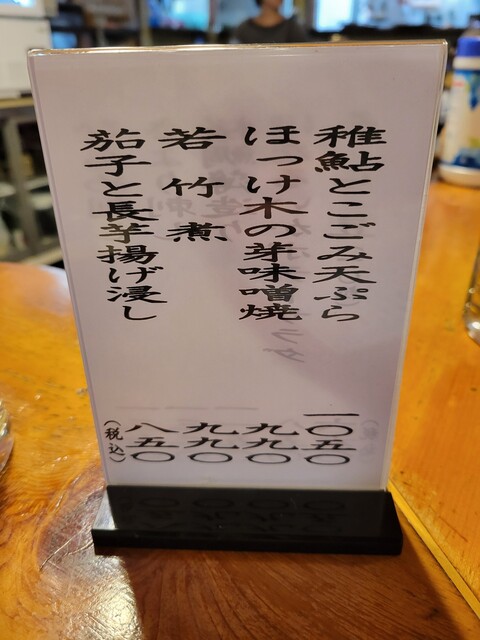 稚鮎とこごみ天ぷら 一〇五〇
ほっけ木の芽味噌焼 九九〇
若竹煮 九九〇
茄子と長芋揚げ浸し 八五〇
(税込)